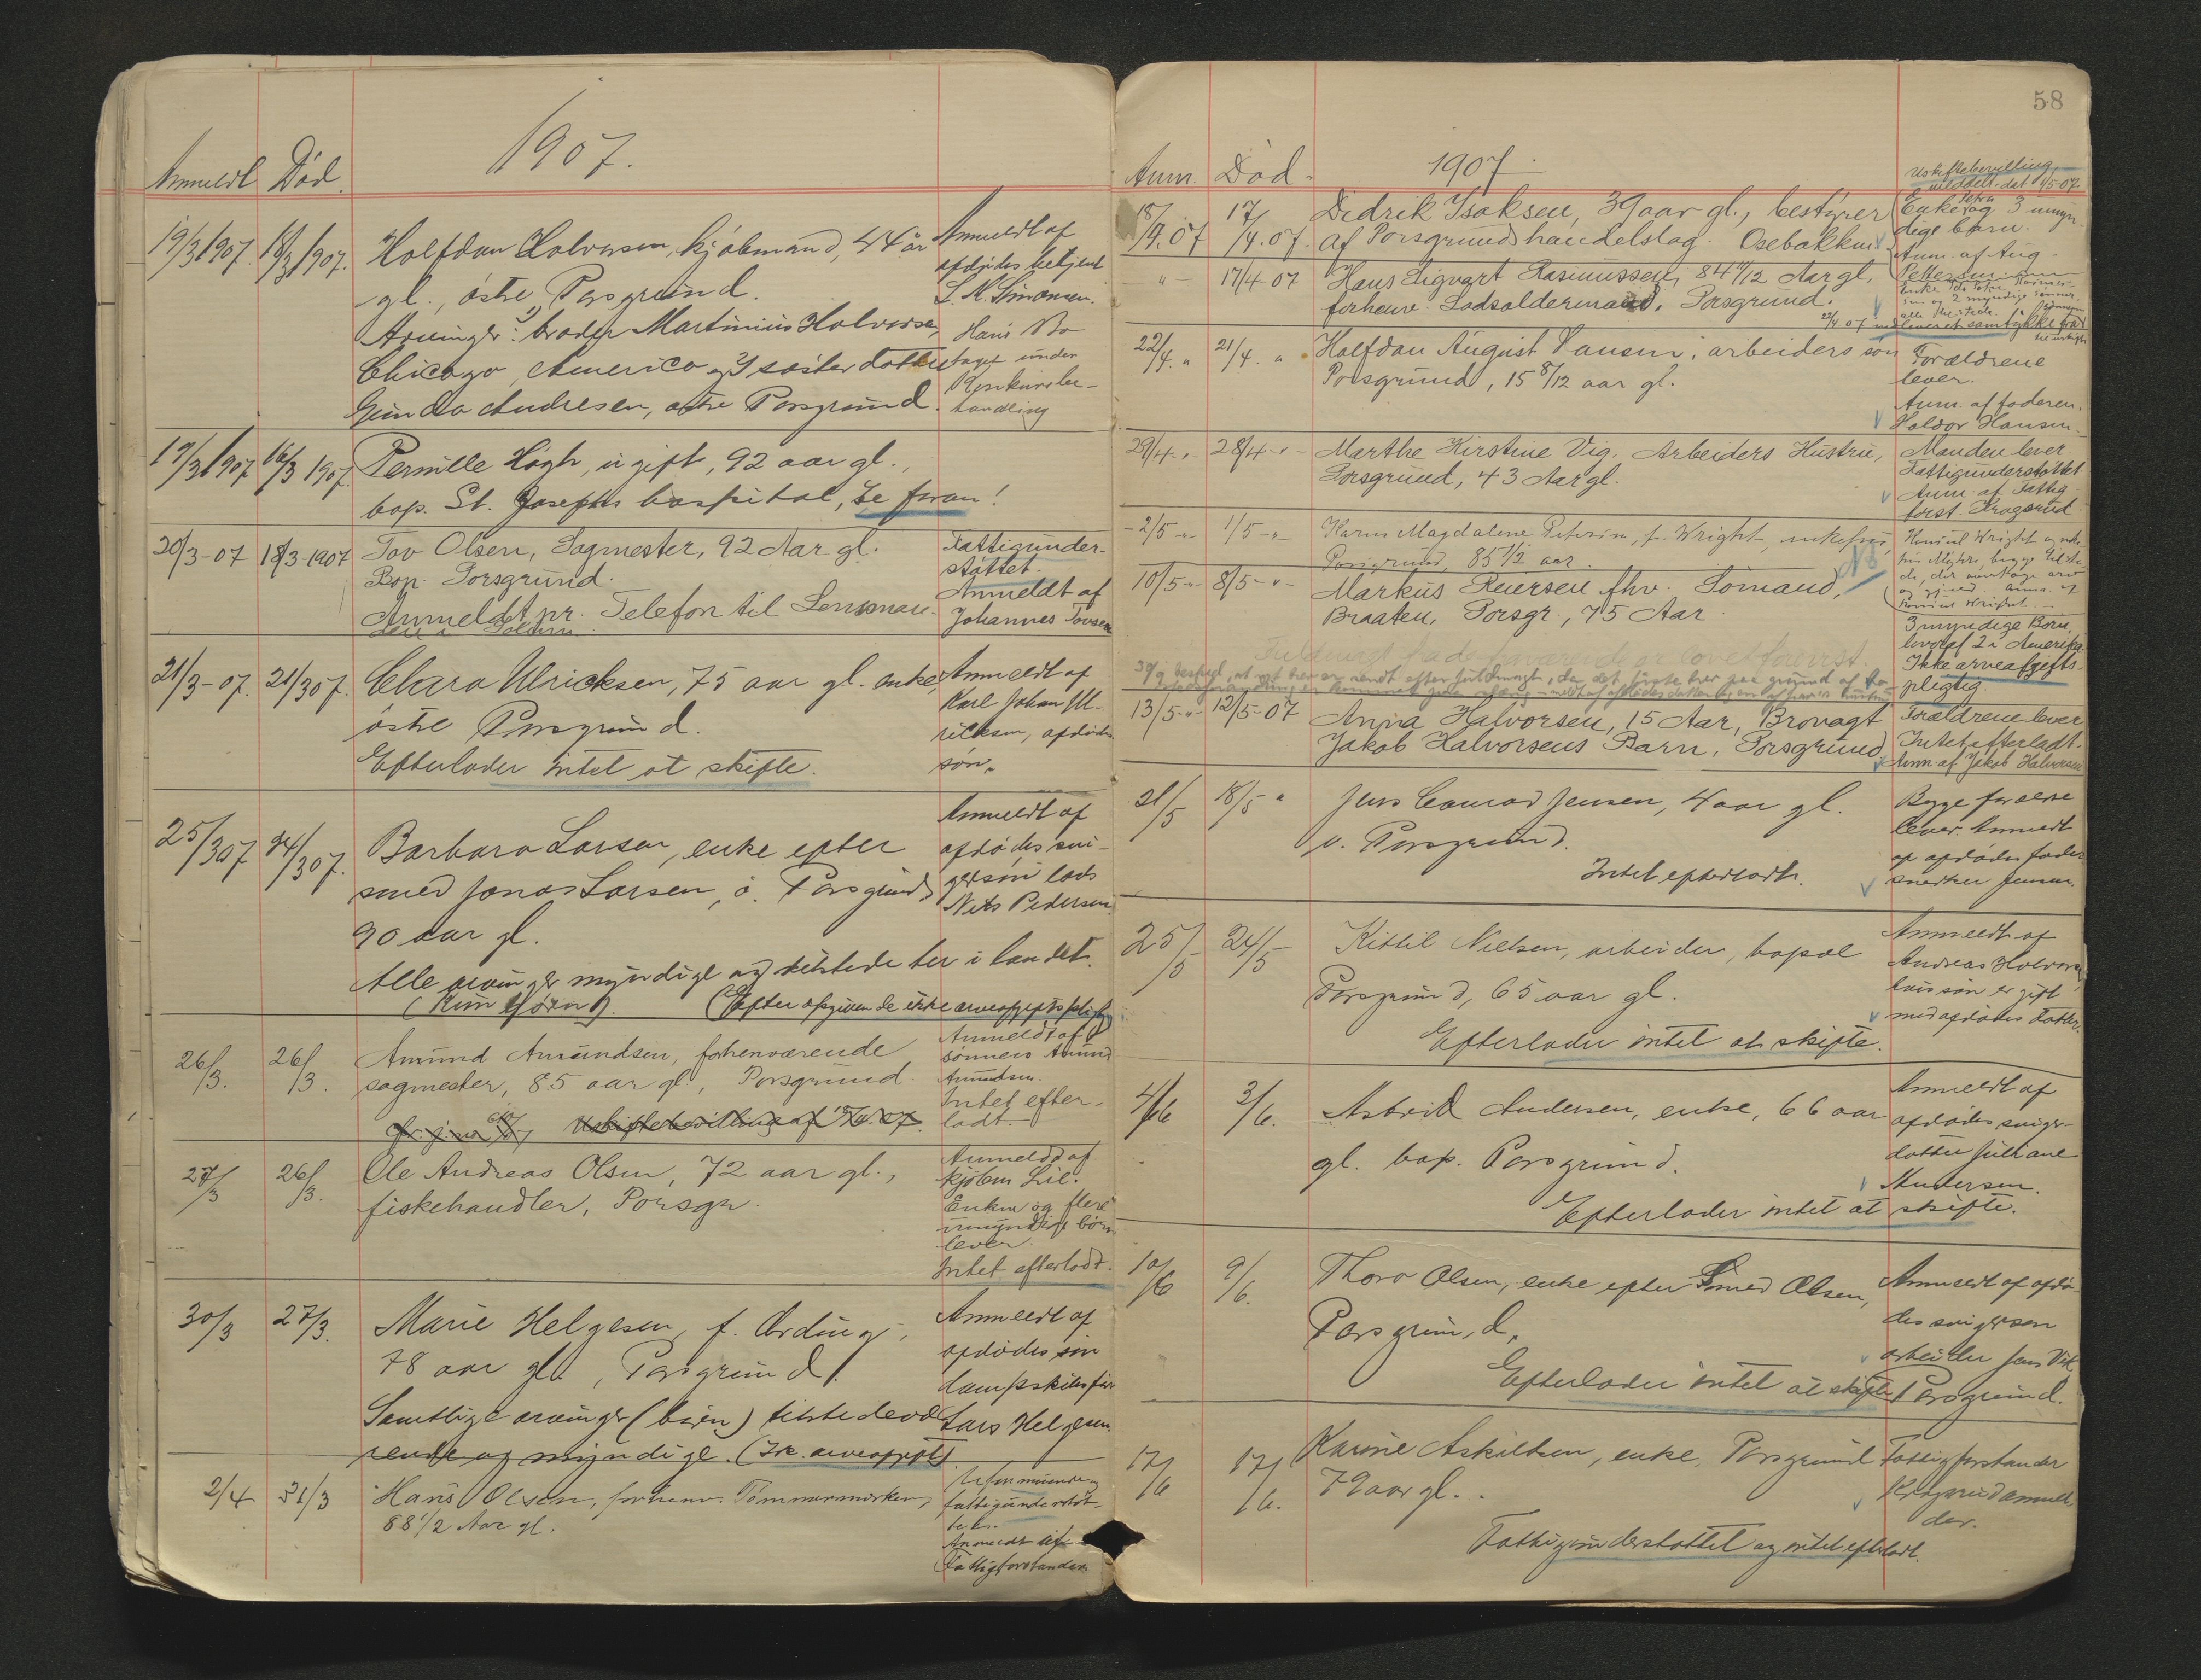 1907.
Anmeldt Död.
19/3 1907 18/3 1907. Halfdan Halvorsen, kjøbmand, 44 år
gl., østre Porsgrund.
Arvinger: 1) broder Martinius Halvorsen,
Chicago, America og 2) søster datter
Gunda Andresen, østre Porsgrund.
Anmeldt af
afdødes betjent
L. M. Simonsen.
Hans Bo
taget under
Konkursbe-
handling
19/3 1907 16/3 1907. Pernille Høgh, ugift, 92 aar gl.,
bop. St. Josephs hospital, Se foran!
20/3-07 18/3-1907 Tov Olsen, Sagmester, 92 Aar gl.
Bop. Porsgrund.
Anmeldt pr. Telefon til Lensman-
Fattigunder-
støttet.
Anmeldt af
Johannes Tovsen
21/3-07. 21/3 07. Clara Ulricksen, 75 aar gl. enke,
østre Porsgrund.
Efterlader intet at skifte.
Anmeldt af
Karl Johan Ul-
ricksen, afdødes
søn.
25/3 07 24/3 07. Barbara Larsen, enke efter
smed Jonas Larsen, ö. Porsgrund
90 aar gl.
Alle arvinger myndige og tilstede her i landet.
(Kun børn). (Efter opgivende ikke arveafgiftspligtig)
Anmeldt af
afdødes svi-
gersøn lods
Nils Pedersen
26/3. 26/3. Amund Amundsen, forhenværende
sagmester, 85 aar gl., Porsgrund.
Uskiftebevilling af
Anmeldt af
sønnen Amund
Amundsen.
Intet efter-
ladt.
27/3 26/3. Ole Andreas Olsen, 72 aar gl.,
fiskehandler, Porsgr.
Anmeldt af
kjøbm Lie.
Enken og flere
myndige børn
lever.
Intet efterladt.
30/3 27/3. Marie Helgesen, f. Ording,
78 aar gl., Porsgrund.
Samtlige arvinger (børn) tilstedevæ
rende og myndige. (Ik. arveafgift)
Anmeldt af
afdødes søn
dampskibsfør
Lars Helgesen.
2/4 31/3 Hans Olsen, forhenv. Tømmermerker,
88 1/2 Aar gl.
Uformuende og
fattigunderstøt-
tet.
Anmeldt af
Fattigforstanderen
58
Anm. Död. 1907
Uskiftebevilling
meddelt. dat 1/5-07.
18/4.07 17/4.07. Didrik Isaksen, 39 aar gl., bestyrer
af Porsgrunds handelslag. Osebakken
Petra
Enke og 3 umyn-
dige børn.
Anm. af Aug.
Pettersen
" 17/4 07 Hans Sigvart Rasmussen, 84 4/12 Aar gl.
forhenv. Lodsoldermand, Porsgrund.
og 2 myndige sønner.
alle tilstede.
22/4 07 indleveret samtykke fra
22/4. " 21/4. " Halfdan August Hansen, arbeiders søn
Porsgrund, 15 8/12 aar gl.
Forældrene
lever.
Anm. af faderen,
Haldor Hansen.
29/4 " 28/4 " Marthe Kirstine Vig. Arbeiders Hustru,
Porsgrund, 43 Aar gl.
Manden lever
Fattigunderstøttet
Anm. af Fattig-
forst. Kragsrud.
2/5 " 1/5 " Karen Magdalene Petersen, f. Wright, enkefru,
Porsgrund, 85 1/2 aar.
NB
Konsul Wright og enke-
fru begge tilste-
de, der arv
og gjæld. Anm. af
Konsul Wright.
10/5 " 8/5 " Markus Reiersen fhv. Sømand,
Braaten, Porsgr., 75 Aar
3 myndige Børn
hvoraf 2 i Amerika.
Ikke arveafgifts-
pligtig.
13/5 " 12/5-07 Anna Halvorsen, 15 Aar, Brovagt
Jakob Halvorsens Barn, Porsgrund
Forældrene lever
Intet efterladt.
Anm af Jakob Halvorsen
21/5 18/5 " Jens Conrad Jensen, 4 aar gl.
v. Porsgrund.
Intet efterladt.
Begge forældre
lever. Anmeldt
af afdødes fader
snedker Jensen.
25/5 24/5 Kittil Nielsen, arbeider, bopæl
Porsgrund, 65 aar gl.
Efterlader intet at skifte.
Anmeldt af
Andreas Halvorsen,
hvis søn er gift
med afdødes datter.
4/6 3/6. Astrid Andersen, enke, 66 aar
gl. bop. Porsgrund.
Efterlader intet at skifte.
Anmeldt af
afdødes sviger-
datter Juliane
Andersen.
10/6 9/6. Thora Olsen, enke efter Smed Olsen,
Porsgrund,
Efterlader intet at skifte
Anmeldt af afdø-
des svigersøn
arbeider Jens Vik
Porsgrund.
17/6 17/6. Karine Askildsen, enke, Porsgrund
79 aar gl.
Fattigunderstøttet og intet efterladt.
Fattigforstander
Kragsrud anmel-
der.